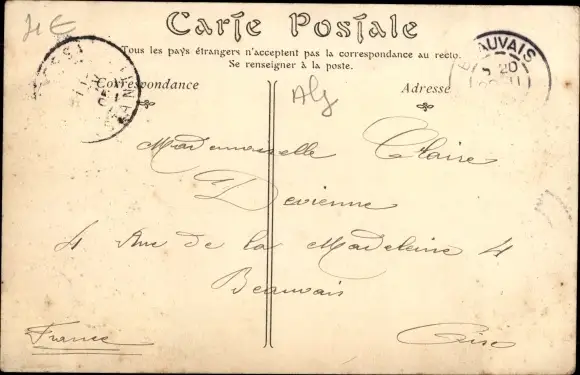 4€
Carte Postale
Tous les pays étrangers n'acceptent pas la correspondance au recto.
Se renseigner à la poste.
BEAUVAIS
20
Correspondance
Adresse
Alg
Mademoiselle Claire
Devienne
4 Rue de la Madeleine 4
Beauvais
France
Oise